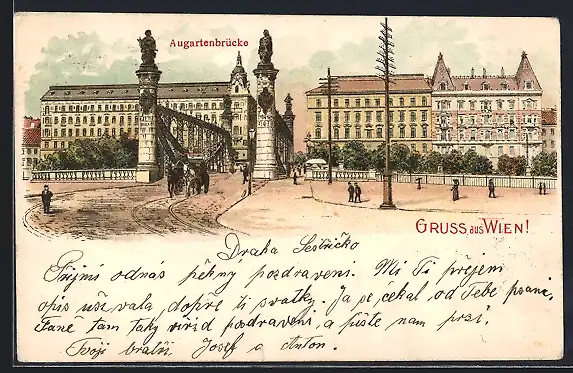 Augartenbrücke
GRUSS aus WIEN!
Draha Sestřičko
Přijmi odnás pěkný pozdraveni. Mi Ti přejem
dopře ti svatky. Ja se čekal, od Tebe psani,
tam taky pozdraveni, a piište nam
Tvoji bratři Josef a Anton.